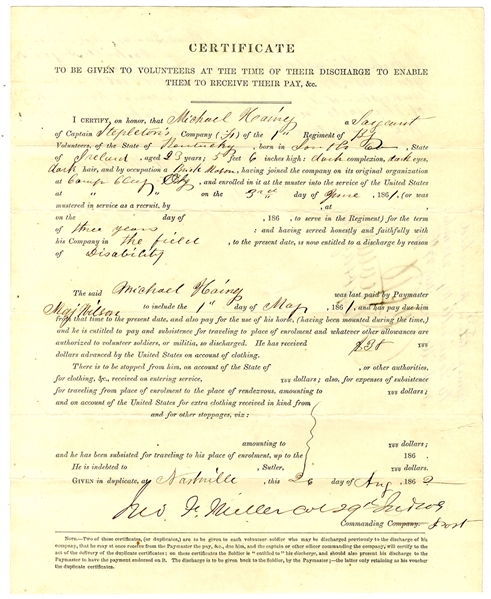 CERTIFICATE
TO BE GIVEN TO VOLUNTEERS AT THE TIME OF THEIR DISCHARGE TO ENABLE
THEM TO RECEIVE THEIR PAY, &c.
I CERTIFY, on honor, that Michael a
of Captain Stepleton's Company ( ) of the 1st Regiment of
Volunteers, of the State of Kentucky, born in , State
of Ireland, aged 23 years; 5 feet 6 inches high: dark complexion, dark eyes,
dark hair, and by occupation a Brick Mason, having joined the company on its original organization
at Camp Clay , and enrolled in it at the muster into the service of the United States
at " " on the 3rd day of June, 1861, (or was
mustered in service as a recruit, by , at
on the day of , 186 , to serve in the Regiment,) for the term
of three years : and having served honestly and faithfully with
his Company in the field , to the present date, is now entitled to a discharge by reason
of Disability
The said Michael was last paid by Paymaster
Maj Wilson to include the 1st day of May , 1861, and has pay due him
from that time to the present date, and also pay for the use of his horse, (having been mounted during the time,)
and he is entitled to pay and subsistence for traveling to place of enrolment and whatever other allowances are
authorized to volunteer soldiers, or militia, so discharged. He has received
dollars advanced by the United States on account of clothing.
There is to be stopped from him, on account of the State of , or other authorities.
for clothing, &c., received on entering service, dollars; also, for expenses of subsistence
for traveling from place of enrolment to the place of rendezvous, amounting to dollars;
and on account of the United States for extra clothing received in kind from
and for other stoppages, viz:
amounting to dollars;
and he has been subsisted for traveling to his place of enrolment, up to the 186 .
He is indebted to , Sutler, dollars.
GIVEN in duplicate, at Nashville , this 26 day of Aug 1862
Jno F Miller Col 29th
Commanding Company.
NOTE.—Two of these certificates, (or duplicates,) are to be given to each volunteer soldier who may be discharged previously to the discharge of his
company, that he may at once receive from the Paymaster the pay, &c., due him, and the captain or other officer commanding the company, will certify to the
act of the delivery of the duplicate certificates; on these certificates the Soldier is "entitled to" his discharge, and should also present his discharge to the
Paymaster to have the payment endorsed on it. The discharge is to be given back to the Soldier, by the Paymaster;—the latter only retaining as his voucher
the duplicate certificates.